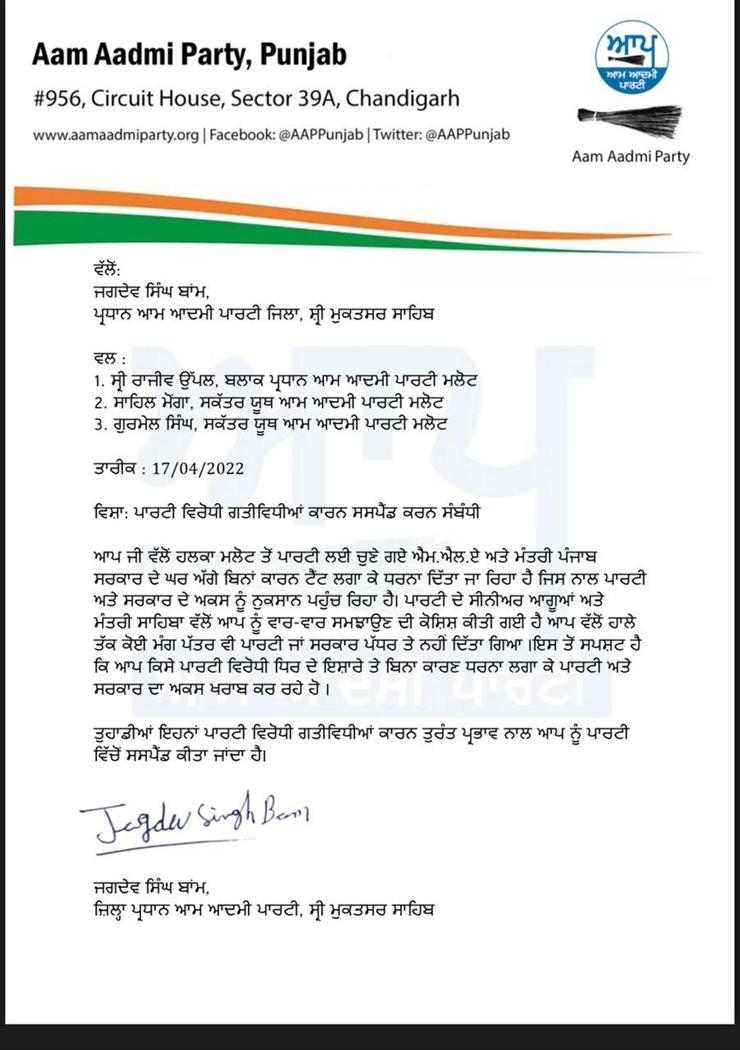 Aam Aadmi Party, Punjab
#956, Circuit House, Sector 39A, Chandigarh
www.aamaadmiparty.org | Facebook: @AAPPunjab | Twitter: @AAPPunjab
ਆਪ
ਆਮ ਆਦਮੀ
ਪਾਰਟੀ
Aam Aadmi Party
ਵੱਲੋਂ:
ਜਗਦੇਵ ਸਿੰਘ ਬਾਂਮ,
ਪ੍ਰਧਾਨ ਆਮ ਆਦਮੀ ਪਾਰਟੀ ਜਿਲਾ, ਸ਼੍ਰੀ ਮੁਕਤਸਰ ਸਾਹਿਬ
ਵਲ :
1. ਸ੍ਰੀ ਰਾਜੀਵ ਉੱਪਲ, ਬਲਾਕ ਪ੍ਰਧਾਨ ਆਮ ਆਦਮੀ ਪਾਰਟੀ ਮਲੋਟ
2. ਸਾਹਿਲ ਮੋਂਗਾ, ਸਕੱਤਰ ਯੂਥ ਆਮ ਆਦਮੀ ਪਾਰਟੀ ਮਲੋਟ
3. ਗੁਰਮੇਲ ਸਿੰਘ, ਸਕੱਤਰ ਯੂਥ ਆਮ ਆਦਮੀ ਪਾਰਟੀ ਮਲੋਟ
ਤਾਰੀਕ : 17/04/2022
ਵਿਸ਼ਾ: ਪਾਰਟੀ ਵਿਰੋਧੀ ਗਤੀਵਿਧੀਆਂ ਕਾਰਨ ਸਸਪੈਂਡ ਕਰਨ ਸੰਬੰਧੀ
ਆਪ ਜੀ ਵੱਲੋਂ ਹਲਕਾ ਮਲੋਟ ਤੋਂ ਪਾਰਟੀ ਲਈ ਚੁਣੇ ਗਏ ਐਮ.ਐਲ.ਏ ਅਤੇ ਮੰਤਰੀ ਪੰਜਾਬ
ਸਰਕਾਰ ਦੇ ਘਰ ਅੱਗੇ ਬਿਨਾਂ ਕਾਰਨ ਟੈਂਟ ਲਗਾ ਕੇ ਧਰਨਾ ਦਿੱਤਾ ਜਾ ਰਿਹਾ ਹੈ ਜਿਸ ਨਾਲ ਪਾਰਟੀ
ਅਤੇ ਸਰਕਾਰ ਦੇ ਅਕਸ ਨੂੰ ਨੁਕਸਾਨ ਪਹੁੰਚ ਰਿਹਾ ਹੈ। ਪਾਰਟੀ ਦੇ ਸੀਨੀਅਰ ਆਗੂਆਂ ਅਤੇ
ਮੰਤਰੀ ਸਾਹਿਬਾ ਵੱਲੋਂ ਆਪ ਨੂੰ ਵਾਰ-ਵਾਰ ਸਮਝਾਉਣ ਦੀ ਕੋਸ਼ਿਸ਼ ਕੀਤੀ ਗਈ ਹੈ ਆਪ ਵੱਲੋਂ ਹਾਲੇ
ਤੱਕ ਕੋਈ ਮੰਗ ਪੱਤਰ ਵੀ ਪਾਰਟੀ ਜਾਂ ਸਰਕਾਰ ਪੱਧਰ ਤੇ ਨਹੀਂ ਦਿੱਤਾ ਗਿਆ ।ਇਸ ਤੋਂ ਸਪਸ਼ਟ ਹੈ
ਕਿ ਆਪ ਕਿਸੇ ਪਾਰਟੀ ਵਿਰੋਧੀ ਧਿਰ ਦੇ ਇਸ਼ਾਰੇ ਤੇ ਬਿਨਾ ਕਾਰਣ ਧਰਨਾ ਲਗਾ ਕੇ ਪਾਰਟੀ ਅਤੇ
ਸਰਕਾਰ ਦਾ ਅਕਸ ਖਰਾਬ ਕਰ ਰਹੇ ਹੋ ।
ਤੁਹਾਡੀਆਂ ਇਹਨਾਂ ਪਾਰਟੀ ਵਿਰੋਧੀ ਗਤੀਵਿਧੀਆਂ ਕਾਰਨ ਤੁਰੰਤ ਪ੍ਰਭਾਵ ਨਾਲ ਆਪ ਨੂੰ ਪਾਰਟੀ
ਵਿੱਚੋਂ ਸਸਪੈਂਡ ਕੀਤਾ ਜਾਂਦਾ ਹੈ।
Jagdev Singh Bam
ਜਗਦੇਵ ਸਿੰਘ ਬਾਂਮ,
ਜ਼ਿਲ੍ਹਾ ਪ੍ਰਧਾਨ ਆਮ ਆਦਮੀ ਪਾਰਟੀ, ਸ੍ਰੀ ਮੁਕਤਸਰ ਸਾਹਿਬ